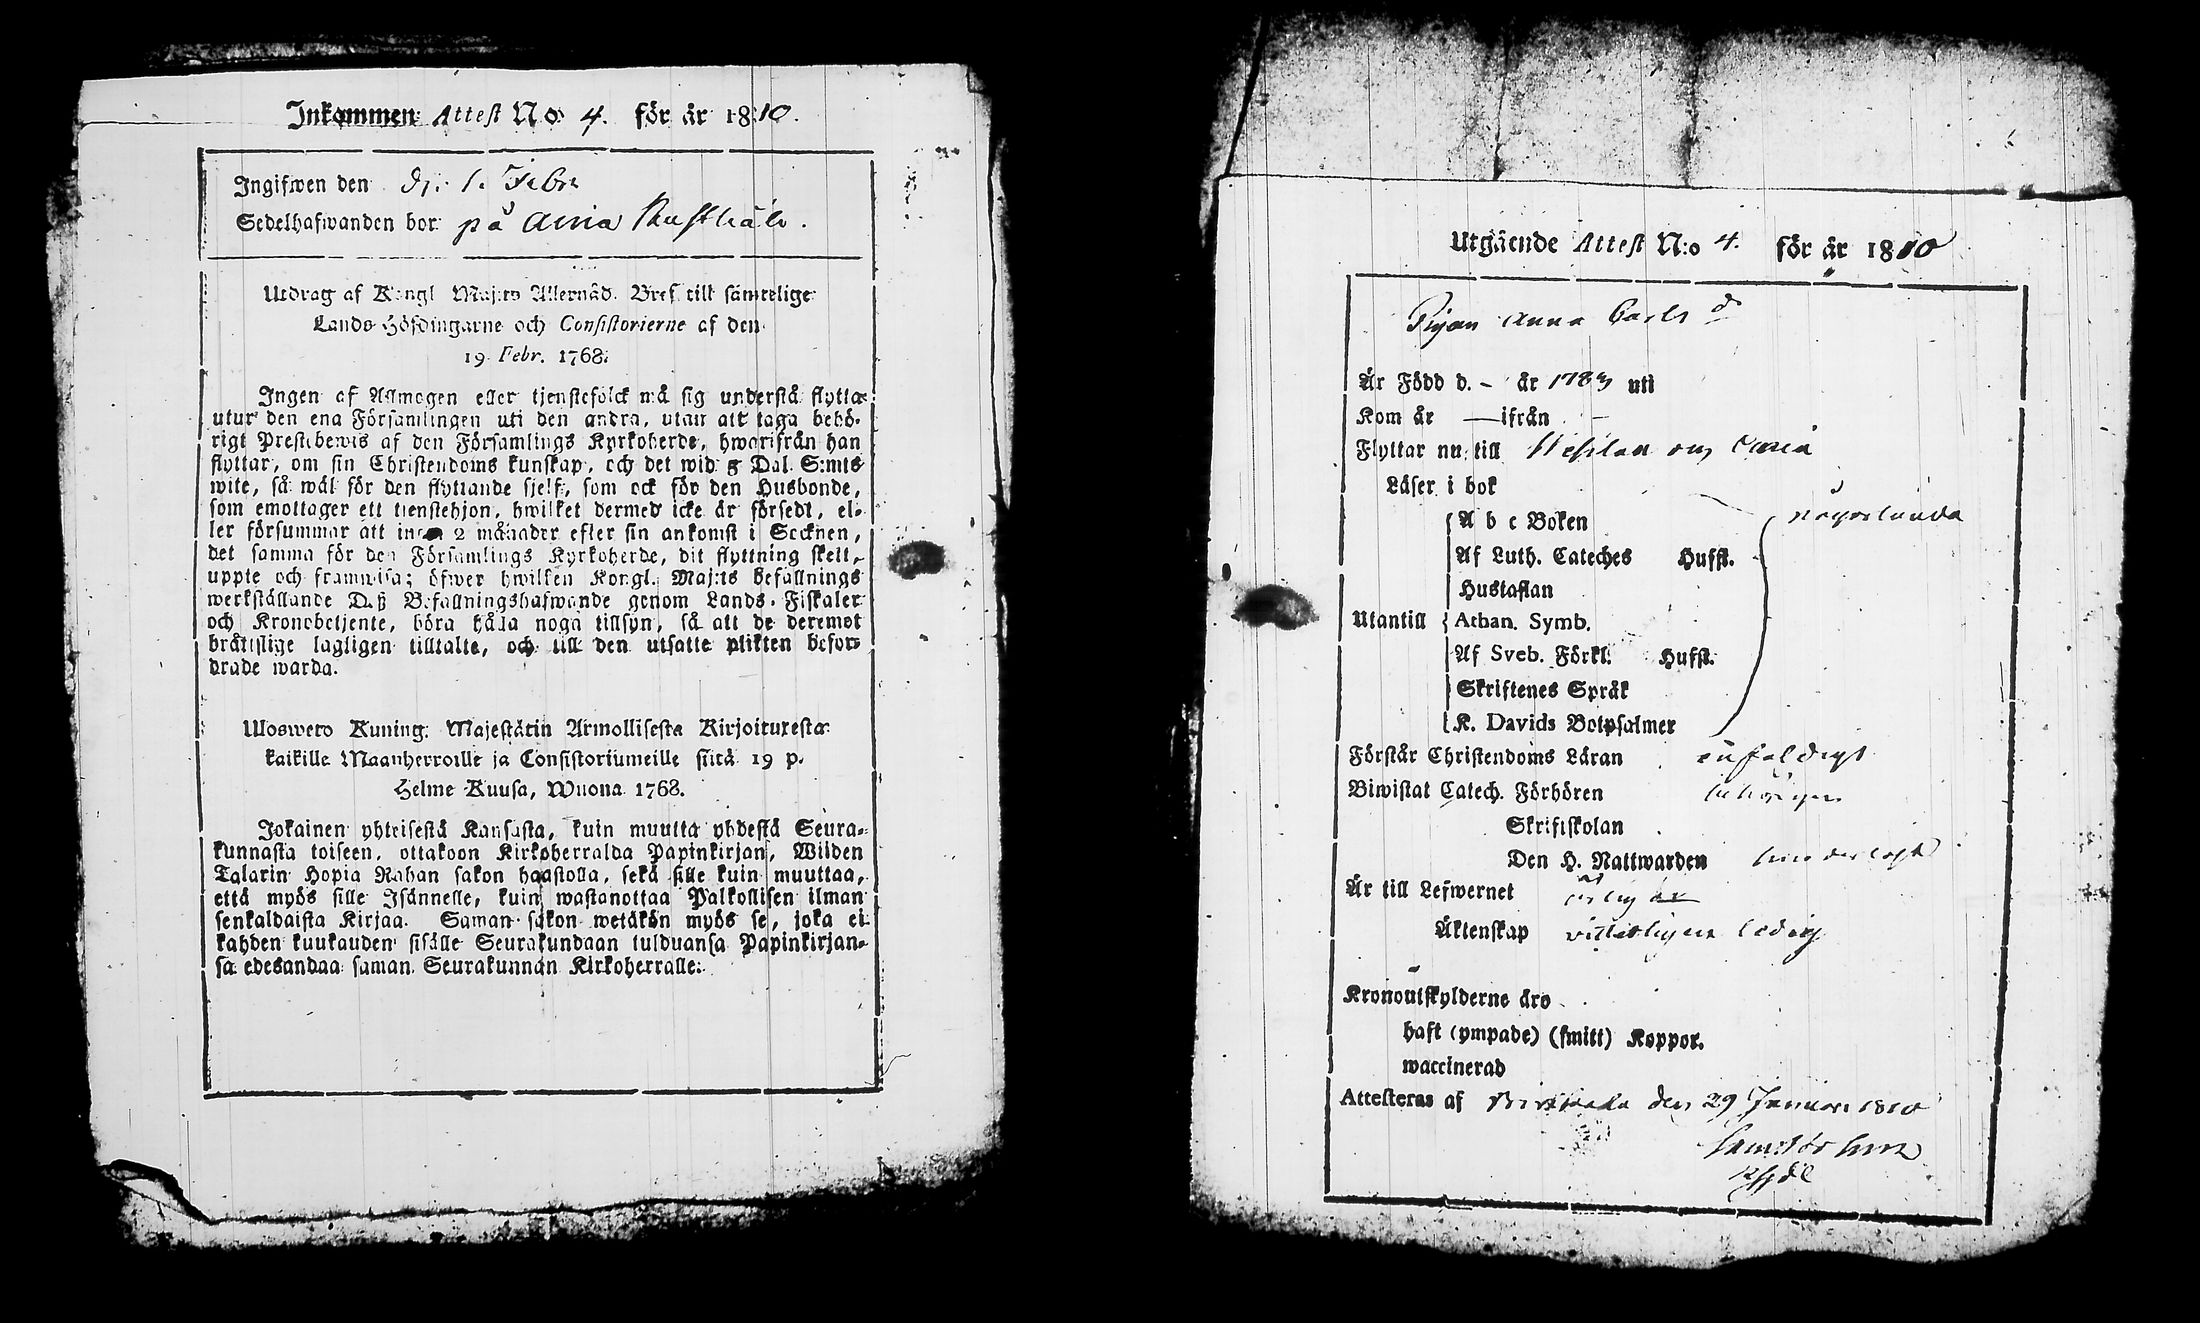 Inkommen Attest No 4. för är 1810.
Ingifwen den d. 1. Febr
Sedelhafwanden bor på Rusthåll.
Utdrag af Kongl Maj:ts Allernåd. Bref till samtelige
Lands-Höfdingarne och Consistorierne af den
19 Febr. 1768.
Ingen af Allmogen eller tjenstefolck må sig understå flytta
utur den ena Församlingen uti den andra, utan att taga behö-
rigt Prestebewis af den Församlings Kyrkoherde, hwarifrån han
flyttar, om sin Christendoms kunskap, och det wid 5 Dal. S:mts
wite, så wäl för den flyttande sjelf, som ock för den Husbonde,
som emottager ett tienstehjon, hwilket dermed icke är försedt, el-
ler försummar att innan 2 månader efter sin ankomst i Socknen,
det samma för den Församlings Kyrkoherde, dit flyttning skett,
uppte och framwisa; öfwer hwilken Kongl. Maj:ts befallnings
werkställande Deß Befallningshafwande genom Lands-Fiskaler
och Kronobetjente, böra hålla noga tillsyn, så att de deremot
bråttslige lagligen tilltalte, och till den utsatte plikten befor-
drade warda.
Ulosweto Kuning. Majestätin Armollisesta Kirjoituresta
kaikille Maanherroille ja Consistoriumeille siitä 19 p.
Helme-Kuusa, Wuona 1768.
Jokainen yhteisestä Kansasta, kuin muutta yhdestä Seura-
kunnasta toiseen, ottakoon Kirkoherralda Papinkirjan, Wilden
Talarin Hopia Rahan sakon haastolla, sekä sille kuin muuttaa,
että myös sille Isännelle, kuin wastanottaa Palkollisen ilman
senkaldaista Kirjaa. Saman sakon wetäkön myös se, joka ei
kahden kuukauden sisälle Seurakundaan tulduansa Papinkirjan-
sa edesandaa saman Seurakunnan Kirkoherralle.
Utgäende Attest N:o 4. för är 1810
Pigan Anna Carls d
Är Född d. - år 1783 uti
Kom år — ifrån —
Flyttar nu till
Läser i bok
A b c Boken någorlunda
Af Luth. Cateches Hufst.
Hustaflan
Utantill Athan. Symb.
Af Sveb. Förkl. Hufst.
Skriftenes Språk
K. Davids Botpsalmer
Förstår Christendoms Läran enfaldigt
Biwistat Catech. Förhören behörigen
Skriftskolan
Den H. Nattwarden
Är till Lefwernet ärlig
Äktenskap witterligen ledig
Kronoutskylderne äro
haft (ympade) (smitt) Koppor.
waccinerad
Attesteras af den 29 Januari 1810